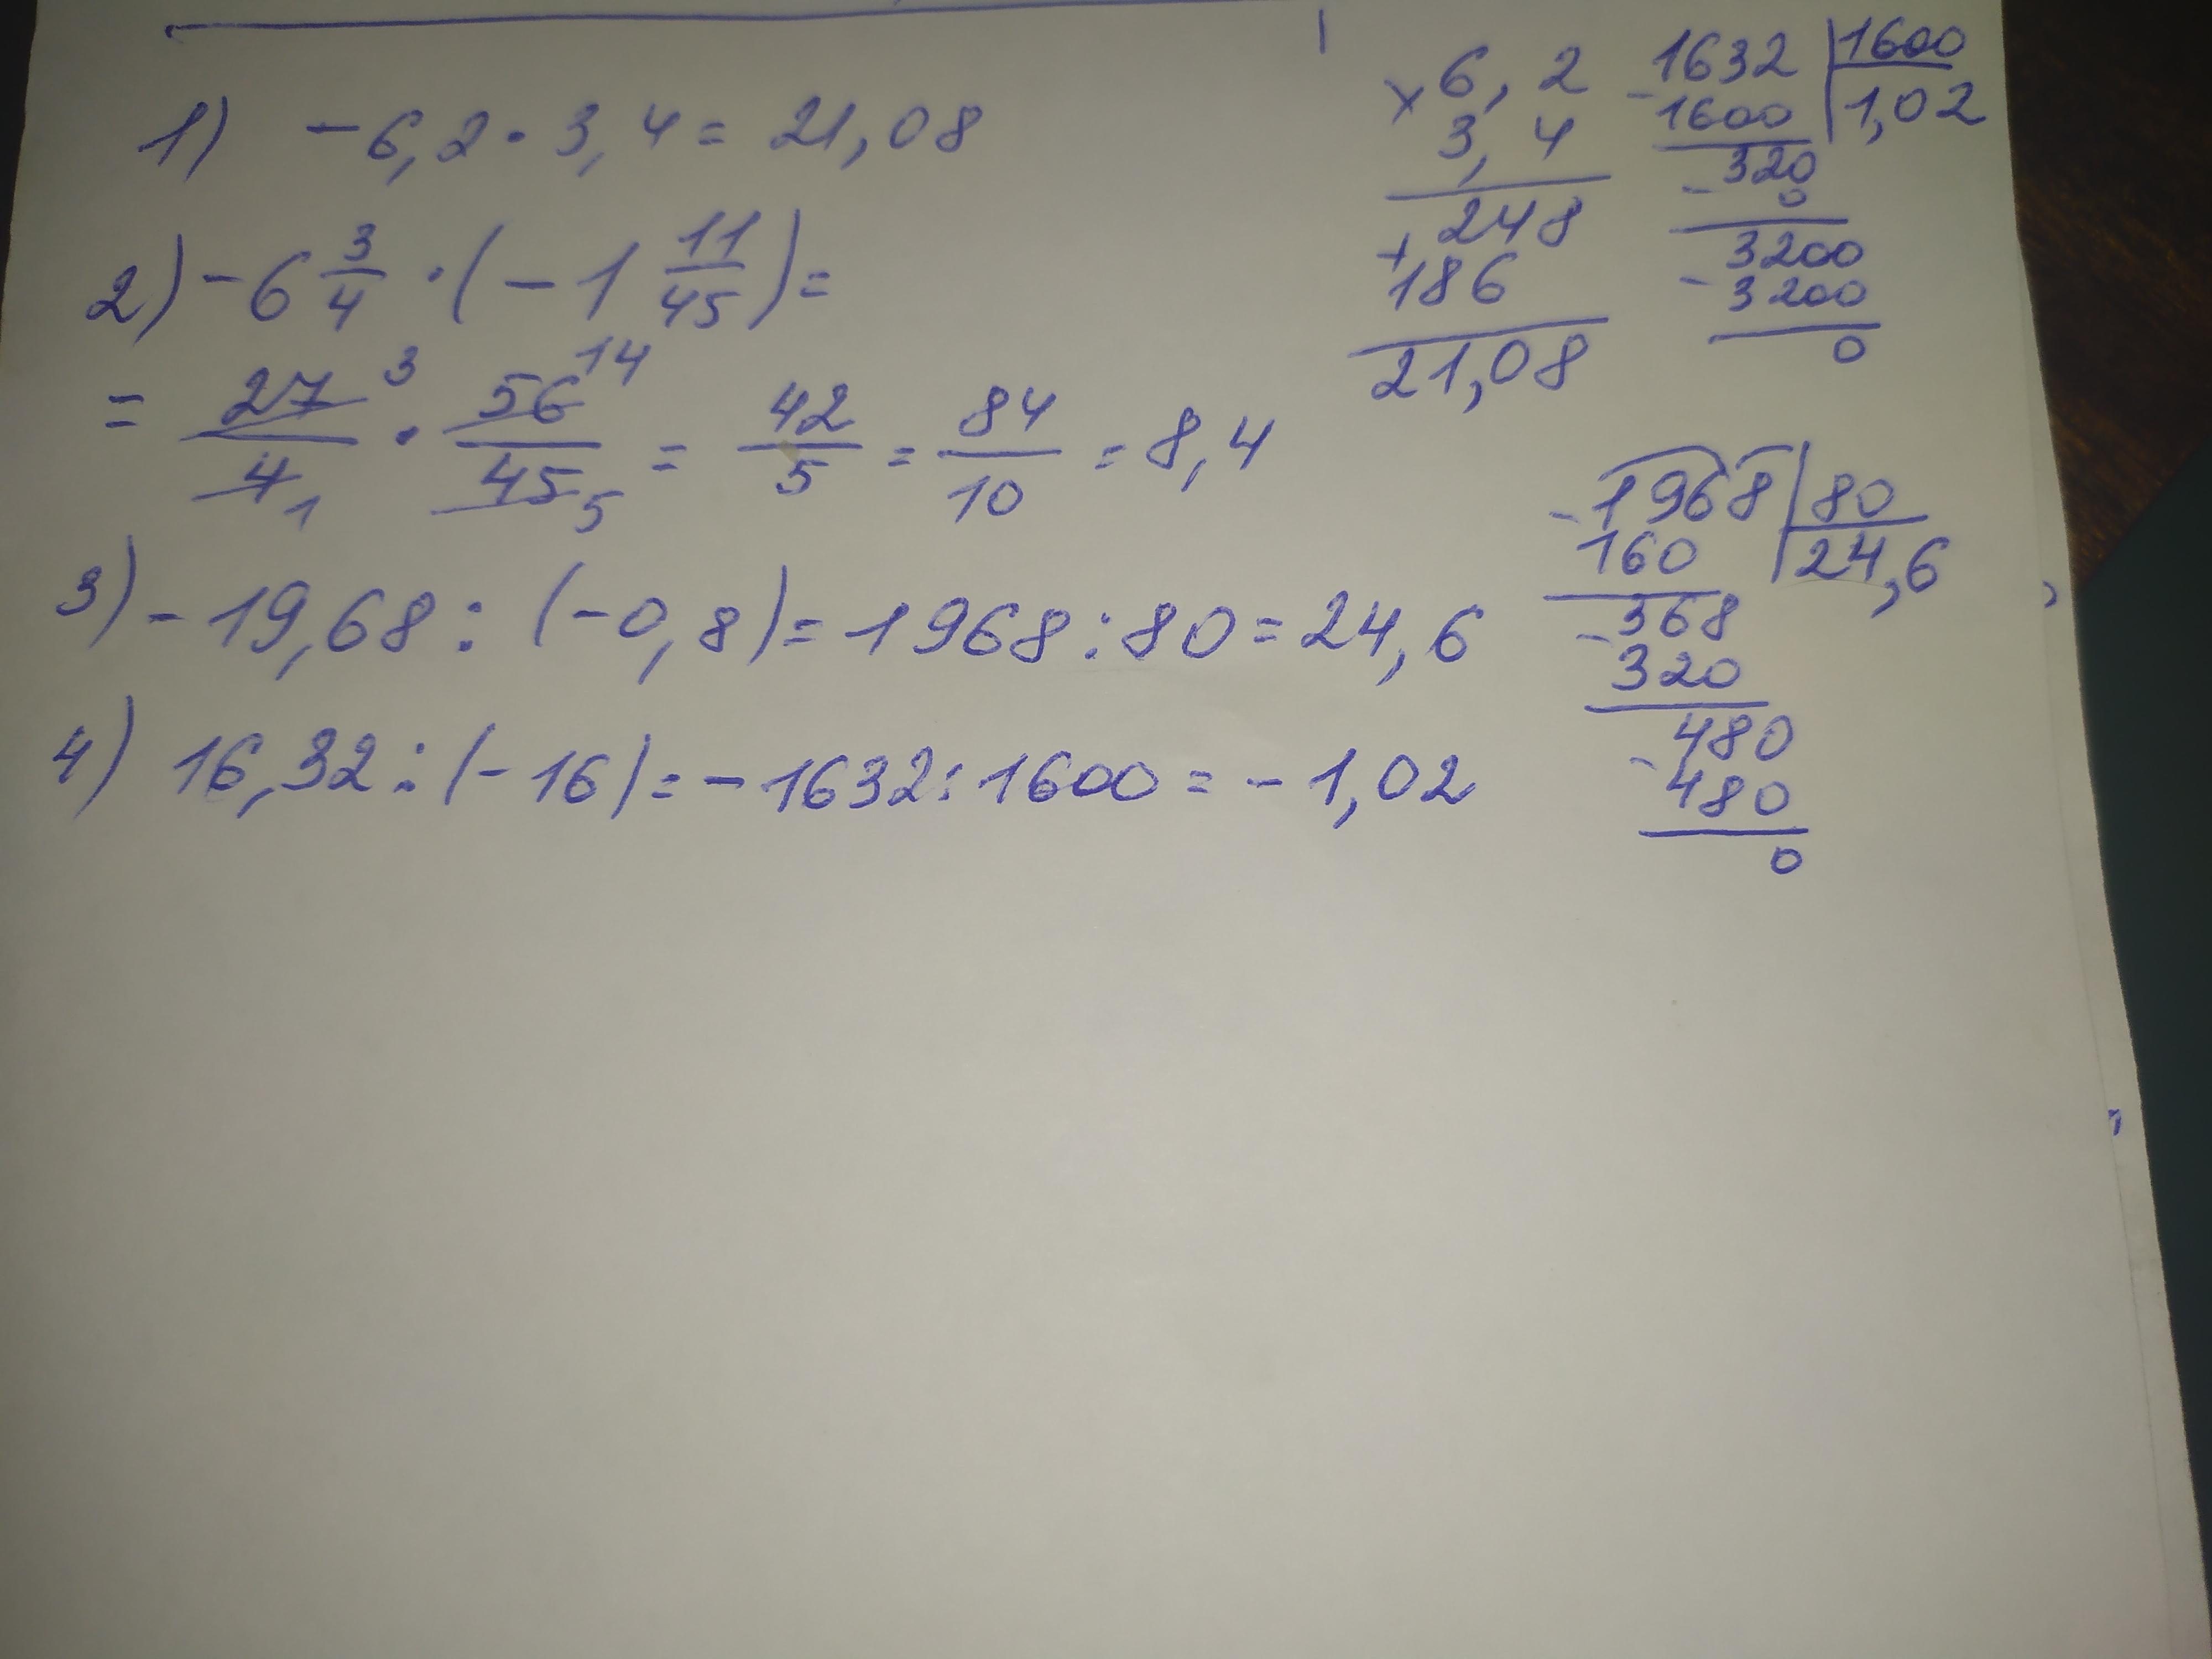 1) -6,2 · 3,4 = 21,08
2) -6 3/4 · (-1 11/45) =
= 27/4 3 1 · 56/45 14 5 = 42/5 = 84/10 = 8,4
3) -19,68 : (-0,8) = 1968 : 80 = 24,6
4) 16,32 : (-16) = -1632 : 1600 = -1,02
× 6,2
3,4
+ 248
186
21,08
- 1632 | 1600
1600 | 1,02
- 320
0
- 3200
3200
0
- 1968 | 80
160 | 24,6
- 368
320
- 480
480
0